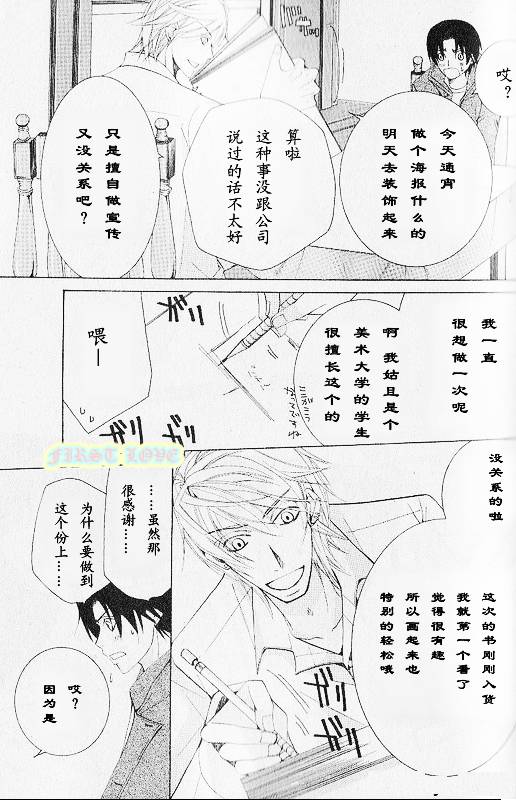 哎？
今天通宵
做个海报什么的
明天去装饰起来
算啦
这种事没跟公司
说过的话不太好
只是擅自做宣传
又没关系吧？
我一直
很想做一次呢
啊 我姑且是个
美术大学的学生
很擅长这个的
喂—
没关系的啦
这次的书刚刚入货
我就第一个看了
觉得很有趣
所以画起来也
特别的轻松哦
……虽然那
很感谢……
为什么要做到
这个份上……
哎？
因为是
FIRST LOVE